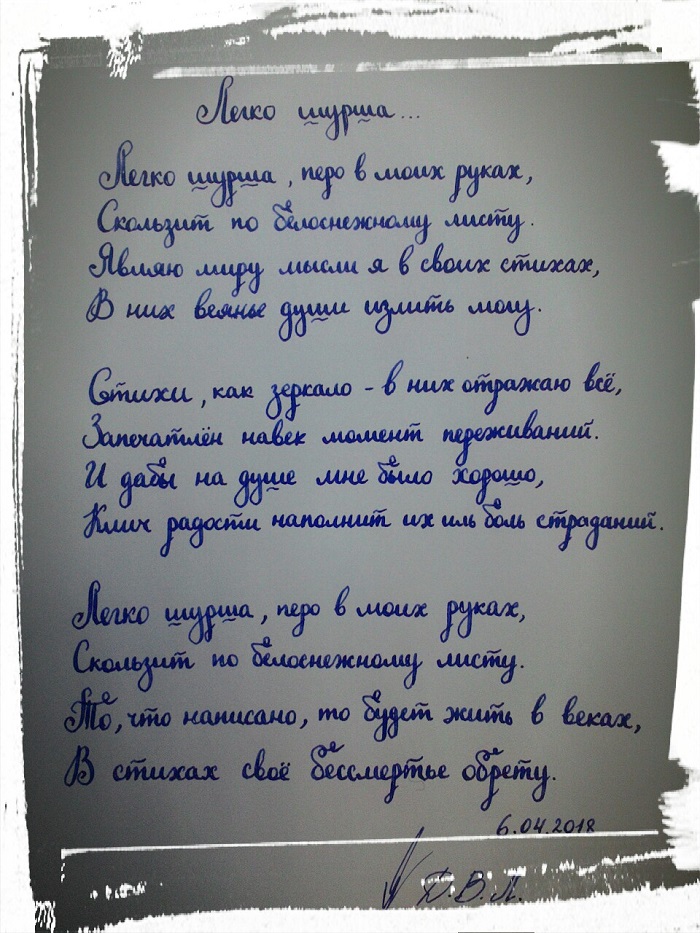 Легко шурша...
Легко шурша, перо в моих руках,
Скользит по белоснежному листу.
Являю миру мысли я в своих стихах,
В них веянье души излить могу.
Стихи, как зеркало - в них отражаю всё,
Запечатлён навек момент переживаний.
И дабы на душе мне было хорошо,
Клич радости наполнит их иль боль страданий.
Легко шурша, перо в моих руках,
Скользит по белоснежному листу.
То, что написано, то будет жить в веках,
В стихах своё бессмертье обрету.
6.04.2018
Д.В.Л.